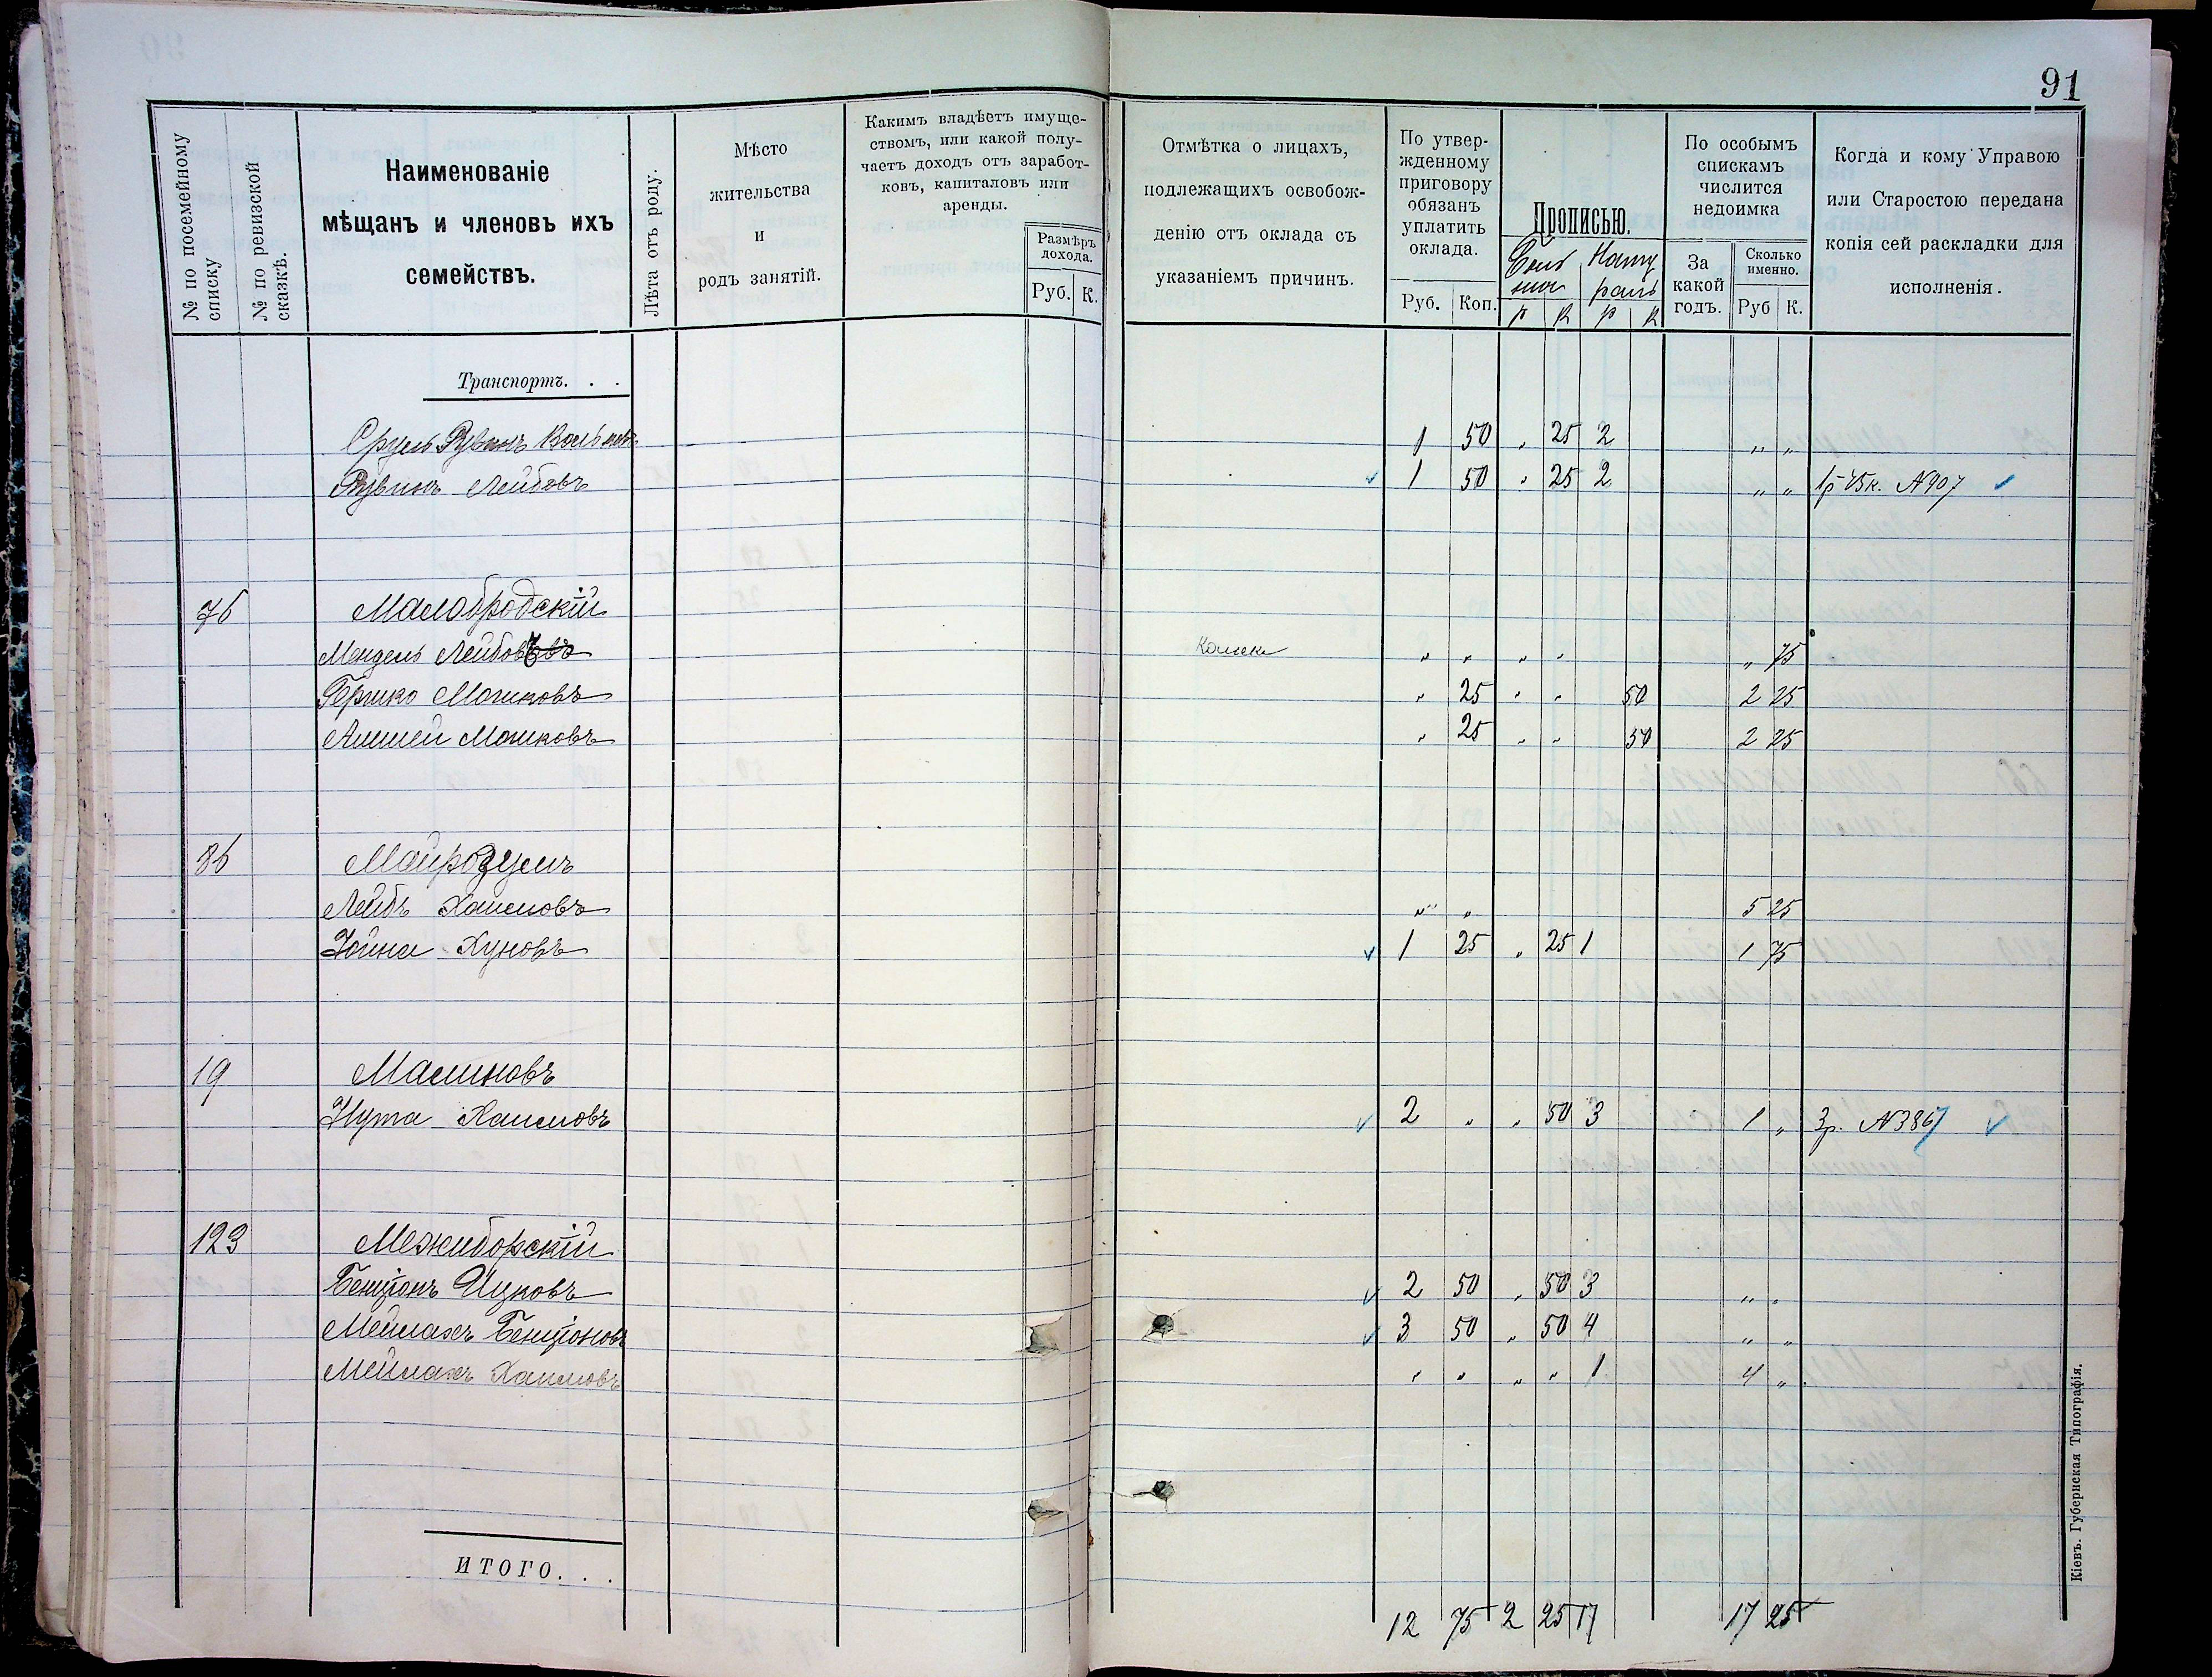 91
№ по посемейному списку
№ по ревизской сказкѣ.
Наименованіе
мѣщанъ и членовъ ихъ
семействъ.
Лѣта отъ роду.
Мѣсто
жительства
и
родъ занятій.
Какимъ владѣетъ имуще-
ствомъ, или какой полу-
чаетъ доходъ отъ заработ-
ковъ, капиталовъ или
аренды.
Размѣръ
дохода.
Руб. К.
Отмѣтка о лицахъ,
подлежащихъ освобож-
денію отъ оклада съ
указаніемъ причинъ.
По утвер-
жденному
приговору
обязанъ
уплатить
оклада.
Руб. Коп.
Прописью.
Р К Р К
По особымъ
спискамъ
числится
недоимка
За
какой
годъ.
Сколько
именно.
Руб К.
Когда и кому Управою
или Старостою передана
копія сей раскладки для
исполненія.
Транспортъ. . .
Сруль Рувинъ 1 50 „ 25 2 „ „
Рувинъ Лейбовъ 1 50 „ 25 2 „ „ 1р 75к. N907
76 Малобродскій
Мендель Лейбовъ „ „ „ „ „ 75
Гершко Мошковъ „ 25 „ „ 50 2 25
Аншей Мошковъ „ 25 „ „ 50 2 25
86 Майрозумъ
Лейбъ Хаимовъ „ „ 5 25
Іойна Хуновъ 1 25 „ 25 1 1 75
19 Малиновъ
Нута Хаимовъ 2 „ „ 50 3 1 „ 3р. N3867
123 Межиборскій
Бенціонъ Ицковъ 2 50 „ 50 3 „ „
Мейлахъ Бенціоновъ 3 50 „ 50 4 „ „
Мейлахъ Хаимовъ „ „ „ „ 1 4 „
ИТОГО. . .
12 75 2 25 17 17 25
Кіевъ. Губернская Типографія.